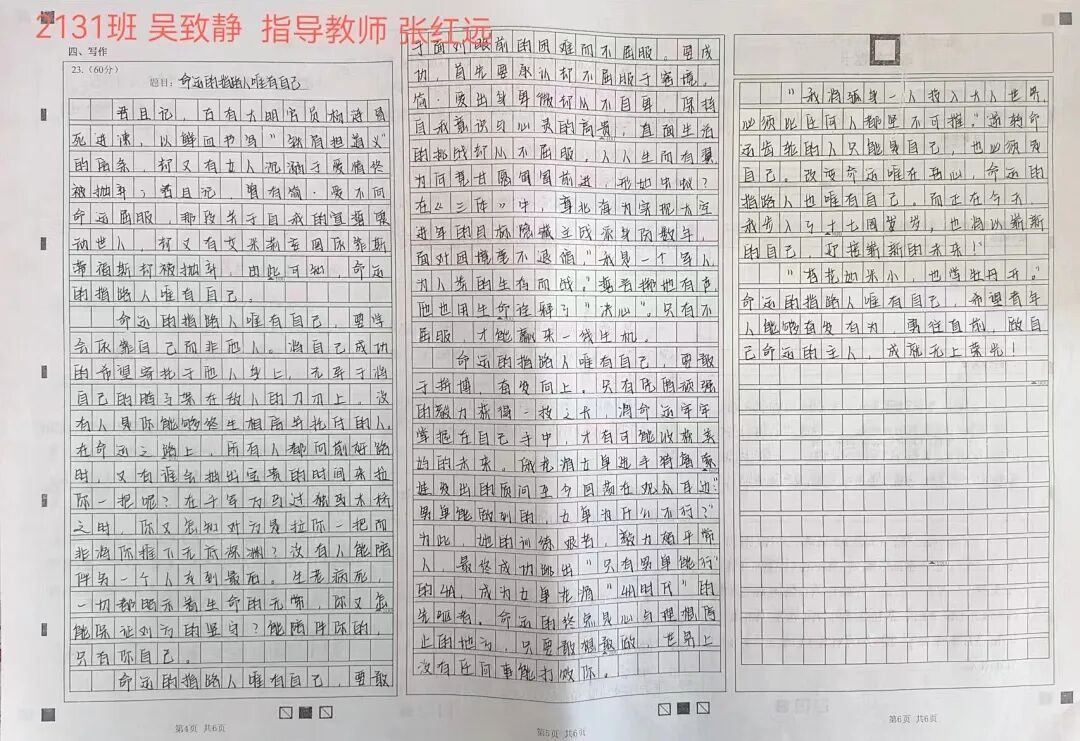 2131班 吴致静 指导教师 张红远
四、写作
23.（60分）
题目：命运的指路人唯有自己
君且记，古有大明官员杨涟冤
死进谏，以鲜血书写“铁肩担道义”
的信条，却又有女人沉溺于爱情终
被抛弃；君且记，曾有简·爱不向
命运屈服，那段关于自我的宣誓震
动世人，却又有艾米莉
希福斯却被抛弃。由此可知，命运
的指路人唯有自己。
命运的指路人唯有自己，要学
会依靠自己而非他人。将自己成功
的希望寄托于他人身上，无异于将
自己的腾弓架在敌人的刀刃上，没
有人是你能够终生相居与托付的人。
在命运之路上，所有人都向前奔跑
时，又有谁会抽出宝贵的时间来拉
你一把呢？在千军万马过独木桥
之时，你又怎知对方是拉你一把而
非将你推下无底深渊？没有人能陪
伴另一个人走到最后。生老病死，
一切都昭示着生命的无常，你又怎
能保证对方的坚守？能陪伴你的，
只有你自己。
命运的指路人唯有自己，要敢
于面对眼前的困难而不屈服。要成
功，首先要承认却不屈服于窘境。
简·爱出身卑微却从不自卑，保持
自我意识与心灵的高贵，直面生活
的挑战却从不屈服。人人生而有翼，
为何竟甘愿匍匐前进，形如虫蚁？
在《三体》中，章北海为实现太空
进军的目标隐藏主战派身份数年，
面对困境毫不退缩“我是一个军人，
为人类的生存而战。”
他也用生命诠释了“决心”。只有不
屈服，才能赢来一线生机。
命运的指路人唯有自己，要敢
于拼搏，奋发向上。只有凭借顽强
的毅力获得一技之长，将命运牢牢
掌握在自己手中，才有可能收获美
好的未来。
娃发出的质问至今回荡在观众耳边：“
男单能做到的，女单为什么不行？”
为此，她的训练艰苦，毅力超乎常
人，最终成功跳出“只有男单能行”
的4A，成为女单花滑“4A时代”的
先驱者。命运的终点是心与理想所
止的地方，只要敢想敢做，世界上
没有任何事能打败你。
“我将孤身一人投入大人世界，
必须比任何人都坚不可摧。”逆转命
运齿轮的人只能是自己，也必须为
自己。改变命运唯在吾心，命运的
指路人也唯有自己。而正在今天，
我步入了十七周岁，也将以崭新
的自己，迎接崭新的未来！
“苔花如米小，也学牡丹开。”
命运的指路人唯有自己，希望青年
人能够奋发有为，勇往直前，做自
己命运的主人，成就无上荣光！
第4页 共6页
第5页 共6页
第6页 共6页